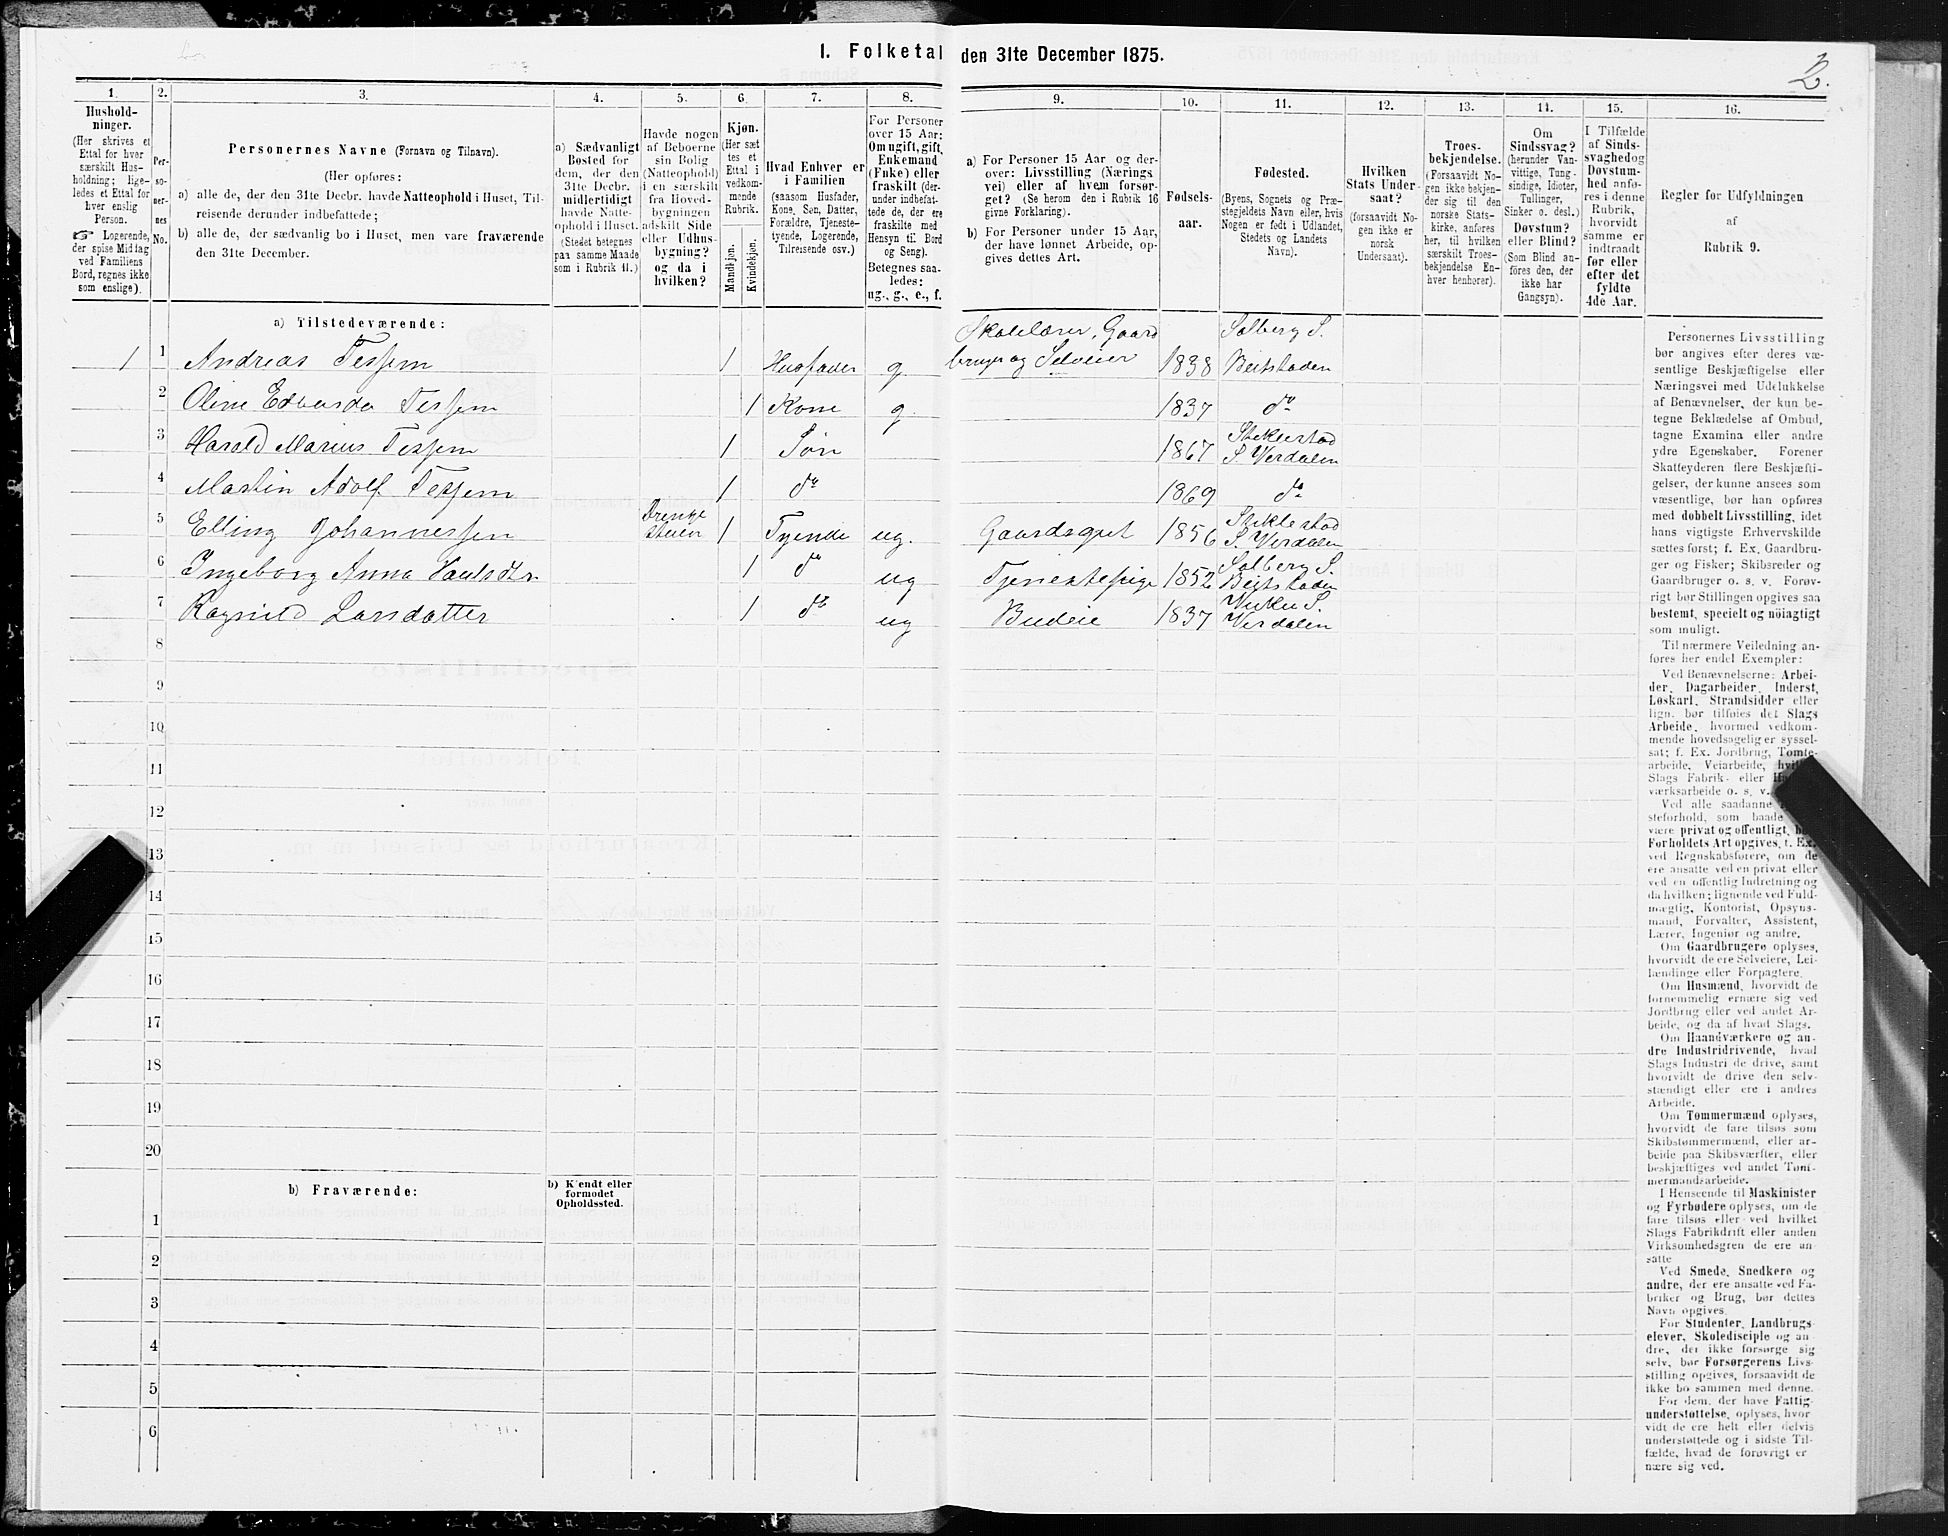 I. Folketal den 31te December 1875.
2.
1.
Hushold-
ninger.
(Her skrives et
Ettal for hver
særskilt Hus-
holdning; lige-
ledes et Ettal for
hver enslig
Person.
☞ Logerende,
der spise Midtag
ved Familiens
Bord, regnes ikke
som enslige).
2.
Per-
so-
ner-
nes
No.
3.
Personernes Navne (Fornavn og Tilnavn).
(Her opføres:
a) alle de, der den 31te Decbr. havde Natteophold i Huset, Til-
reisende derunder indbefattede;
b) alle de, der sædvanlig bo i Huset, men vare fraværende
den 31te December.
4.
a) Sædvanligt
Bosted for
dem, der den
31te Decbr.
midlertidigt
havde Natte-
ophold i Huset.
(Stedet betegnes
paa samme Maade
som i Rubrik 11.)
5.
Havde nogen
af Beboerne
sin Bolig
(Natteophold)
i en særskilt
fra Hoved-
bygningen
adskilt Side
eller Udhus-
bygning?
og da i
hvilken?
6.
Kjøn.
(Her sæt
tes et
Ettal i
vedkom-
mende
Rubrik.
Mandkjøn.
Kvindekjøn.
7.
Hvad Enhver er
i Familien
(saasom Husfader,
Kone, Søn, Datter,
Forældre, Tjeneste-
tyende, Logerende,
Tilreisende osv.)
8.
For Personer
over 15 Aar:
Om ugift, gift,
Enkemand
(Enke) eller
fraskilt (der-
under indbefat-
tede de, der ere
fraskilte med
Hensyn til Bord
og Seng).
Betegnes saa-
ledes:
ug., g., e., f.
9.
a) For Personer 15 Aar og der-
over: Livsstilling (Nærings
vei) eller af hvem forsør-
get? (Se herom den i Rubrik 16
givne Forklaring).
b) For Personer under 15 Aar,
der have lønnet Arbeide, op-
gives dettes Art.
10.
Fødsels-
aar.
11.
Fødested.
(Byens, Sognets og Præ-
stegjeldets Navn eller, hvis
Nogen er født i Udlandet,
Stedets og Landets
Navn).
12.
Hvilken
Stats Under-
saat?
(forsaavidt No-
gen ikke er
norsk
Undersaat).
13.
Troes-
bekjendelse.
(Forsaavidt No-
gen ikke bekjen-
der sig til den
norske Stats-
kirke, anføres
her, til hvilken
særskilt Troes-
bekjendelse En-
hver henhører).
14.
Om
Sindssvag?
(herunder Van-
vittige, Tung-
sindige, Idioter,
Tullinger,
Sinker o. desl.)
Døvstum?
eller Blind?
(Som Blind an-
føres den, der
ikke har
Gangsyn).
15.
I Tilfælde
af Sinds-
svaghedog
Døvstum-
hed anfø-
res i denne
Rubrik,
hvorvidt
samme er
indtraadt
før eller
efter det
fyldte
4de Aar.
16.
Regler før Udfyldningen
af
Rubrik 9.
a) Tilstedeværende:
1 1 Andreas Tessem 1 Husfader g. Skolelærer, Gaard
bruger og Selveier 1838 Solberg S.
Beitstaden
2 Oline Edvarda Tessem 1 Kone g. 1837 do
3 Harald Marius Tessem 1 Søn 1867 Stiklestad
S. Verdalen
4 Martin Adolf Tessem 1 do 1869 do
5 Elling Johannessen Drenge
stuen 1 Tyende ug. Gaardsgut 1856 Stiklestad
S. Verdalen
6 Ingeborg Anna Paulsdtr. 1 do ug Tjenestepige 1852 Solberg S.
Beitstaden
7 Ragnild Larsdatter 1 do ug Budeie 1837 Vuku S.
Verdalen
8
9
10
11
12
13
14
15
16
17
18
19
20
b) Fraværende:
b) Kjendt eller
formodet
Opholdssted.
1
2
3
4
5
6
Personernes Livsstilling
bør angives efter deres væ-
sentlige Beskjæftigelse eller
Næringsvei med Udelukkelse
af Benævnelser, der kun be-
tegne Beklædelse af Ombud,
tagne Examina eller andre
ydre Egenskaber. Forener
Skatteyderen flere Beskjæfti-
gelser, der kunne ansees som
væsentlige, bør han opføres
med dobbelt Livsstilling, idet
hans vigtigste Erhvervskilde
sættes først; f. Ex. Gaardbru-
ger og Fisker; Skibsreder og
Gaardbruger o. s. v. Forøv-
rigt bør Stillingen opgives saa
bestemt, specielt og nøiagtigt
som muligt.
Til nærmere Veiledning an-
føres her endel Exempler:
Ved Benævnelserne: Arbei-
der, Dagarbeider, Inderst,
Løskarl, Strandsidder eller
lign. bør tilføies det Slags
Arbeide, hvormed vedkom-
mende hovedsagelig er syssel-
sat; f. Ex. Jordbrug, Tomte-
arbeide, Veiarbeide,
Slags Fabrik- eller
værksarbeide o. s. v.
Ved alle saadanne
steforhold, som baade
være privat og offentligt,
Forholdets Art opgives, f. Ex.
ved Regnskabsførere, om de
ere ansatte ved en privat eller
ved en offentlig Indretning og
da hvilken; lignende ved Fuld-
mægtig, Kontorist, Opsyns-
mand, Forvalter, Assistent,
Lærer, Ingeniør og andre.
Om Gaardbrugere oplyses,
hvorvidt de ere Selveiere, Lei-
lændinge eller Forpagtere.
Om Husmænd, hvorvidt de
fornemmelig ernære sig ved
Jordbrug eller ved andet Ar-
beide, og da af hvad Slags.
Om Haandværkere og an-
dre Industridrivende, hvad
Slags Industri de drive, samt
hvorvidt de drive den selv-
stændigt eller ere i andres
Arbeide.
Om Tømmermænd oplyses,
hvorvidt de fare tilsøs som
Skibstømmermænd, eller ar-
beide paa Skibsværfter, eller
beskjæftiges ved andet Tøm-
mermandsarbeide.
I Henseende til Maskinister
og Fyrbødere oplyses, om de
fare tilsøs eller ved hvilket
Slags Fabrikdrift eller anden
Virksomhedsgren de ere an-
satte
Ved Smede, Snedkere og
andre, der ere ansatte ved Fa-
briker og Brug, bør dettes
Navn opgives.
For Studenter, Landbrugs-
elever, Skoledisciple og an-
dre, der ikke forsørge sig
selv, bør Forsørgerens Livs-
stilling opgives, forsaavidt de
ikke bo sammen med denne.
For dem, der have Fattig-
understøttelse, oplyses, hvor
vidt de ere helt eller delvis
understøttede og i sidste Til-
fælde, hvad de forøvrigt er
nære sig ved.